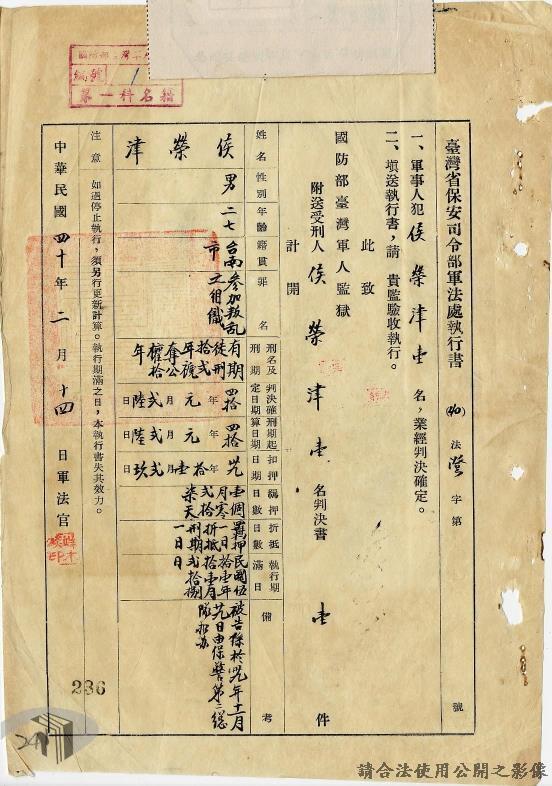 臺灣省保安司令部軍法處執行書
(40)法澄字第 號
一、軍事人犯侯榮津壹名，業經判決確定。
二、塡送執行書，請 貴監驗收執行。
此致
國防部臺灣軍人監獄
附送受刑人侯榮津壹名判決書壹件
計開
姓名 侯榮津
性別 男
年齡 二七
籍貫 台南市
罪名 參加叛乱之組織
刑名及刑期 有期徒刑拾弍年褫奪公權拾年
判決確定日期 四拾年元月弍陸日
刑期起算日期 四拾年元月弍陸日
扣押日期 卅九年拾壹月弍玖日
羈押日數 壹個月零弍拾柒天
折抵日數 羈押一日折抵刑期一日
執行期滿日 民國伍拾壹年拾壹月弍拾捌日
備考 被告係於卅九年十一月廿九日由保警第二總隊
注意 如遇停止執行，須另行更新計算。執行期滿之日，本執行書失其效力。
中華民國四十年二月十四日軍法官
編號 1
第一科名籍
236
241
請合法使用公開之影像